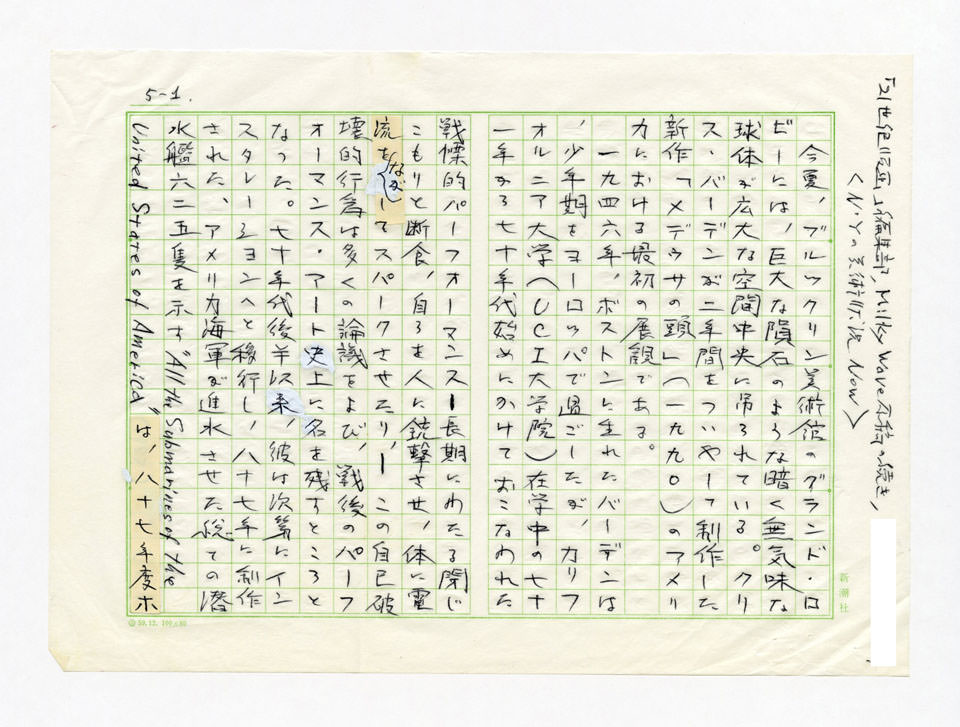 「21世紀版画」編集部, Milky Wave 原稿の続き,
<N・Yの美術状況 Now>
5-1.
今夏、ブルックリン美術館のグランド・ロ
ビーには、巨大な隕石のような暗く無気味な
球体が広大な空間中央に吊られている。クリ
ス・バーデンが二年間をついやして制作した
新作「メデウサの頭」(一九九〇)のアメリ
カにおける最初の展観である。
一九四六年、ボストンに生れたバーデンは
、少年期をヨーロッパで過ごしたが、カリフ
オルニア大学(UCI大学院)在学中の七十
一年から七十年代始めにかけておこなわれた
戦慄的パーフォーマンスー長期にわたる閉じ
こもりと断食、自らを人に銃撃させ、体に電
流をながしてスパークさせたり、ーこの自己破
壊的行為は多くの論議をよび、戦後のパーフ
オーマンス・アート史上に名を残すところと
なった。七十年代後半以来、彼は次第にイン
スタレーションへと移行し、八十七年に制作
された、アメリカ海軍が進水させた総ての潜
水艦六二五隻を示す"All the Submarines of the
United States of America"は、八十七年度ホ
新潮社
59.12. 100×80